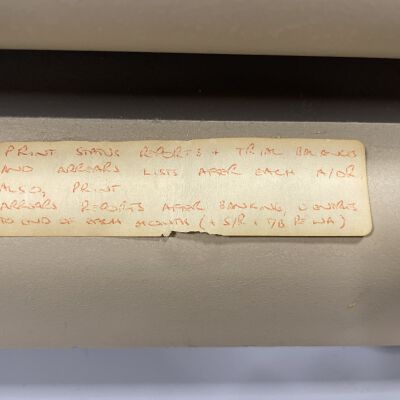 PRINT STATUS REPORTS + TRIAL BALANCES
AND ARREARS LISTS AFTER EACH A/DR
ALSO, PRINT
ARREARS REPORTS AFTER BANKING,
TO END OF EACH MONTH (+ S/R + T/B